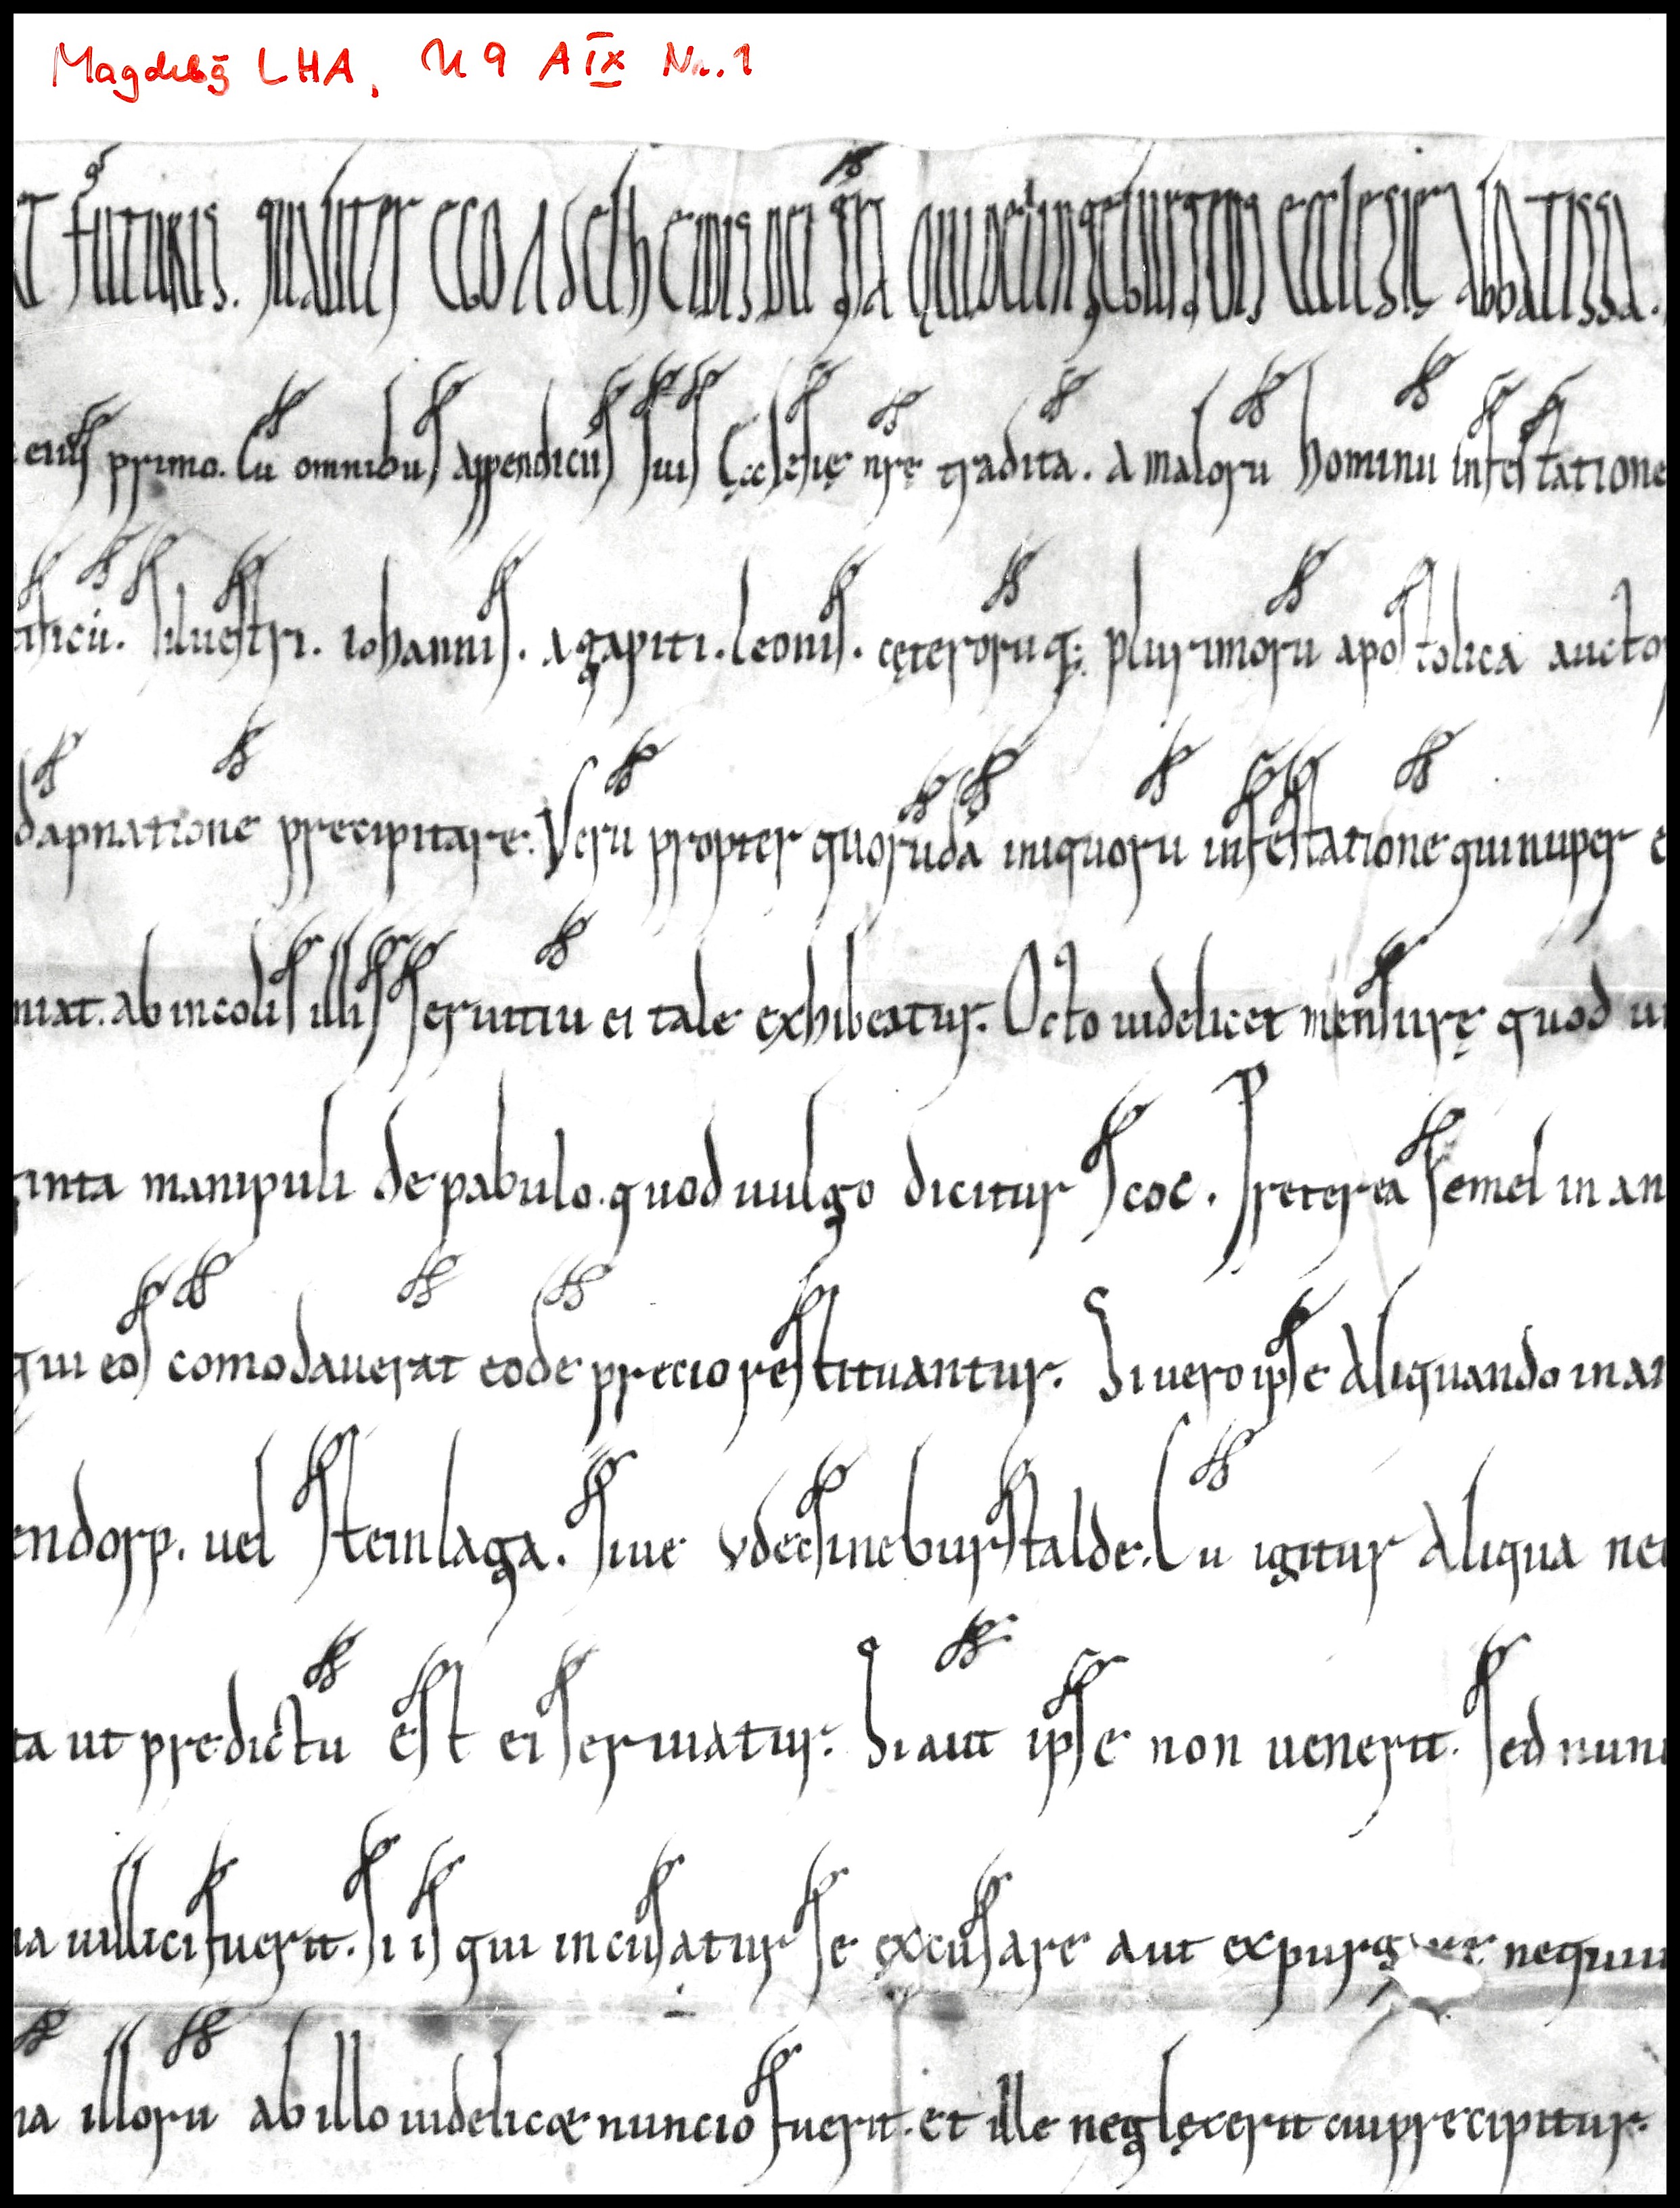 Magdebg LHA, U 9 A IX Nr. 1
T futuris. qualiter ego Adelheidis dei gra Quidelingeburgensis ecclesie abbatissa.
eius primo. Cū omnibus appendiciis suis Ęcclesię nrę tradita. a malorū hominū infestatione
tificū. siluestri. iohannis. agapiti. leonis. cęterorūq; plurimorū apostolica aucto
dāpnatione precipitare. Verū propter quorūdā iniquorū infestationē qui nuper e
niat. ab incolis illis seruitiū ei tale exhibeatur. Octo uidelicet mensurę quod ui
ginta manipuli de pabulo. quod uulgo dicitur scoc. Preterea semel in an
qui eos comodauerat eodē precio restituantur. Si uero ipse aliquando in ar
endorp. uel steinlaga. siue vdesineburstalde. Cū igitur aliqua ne
ta ut predictū est ei seruiatur. Si aut ipse non uenerit. sed nuni
na uillici fuerit. si is qui incusatur se excusare aut expurgare nequiu
na illorū ab illo uidelicet nuncio fuerit. et ille neglexerit cui precipitur.